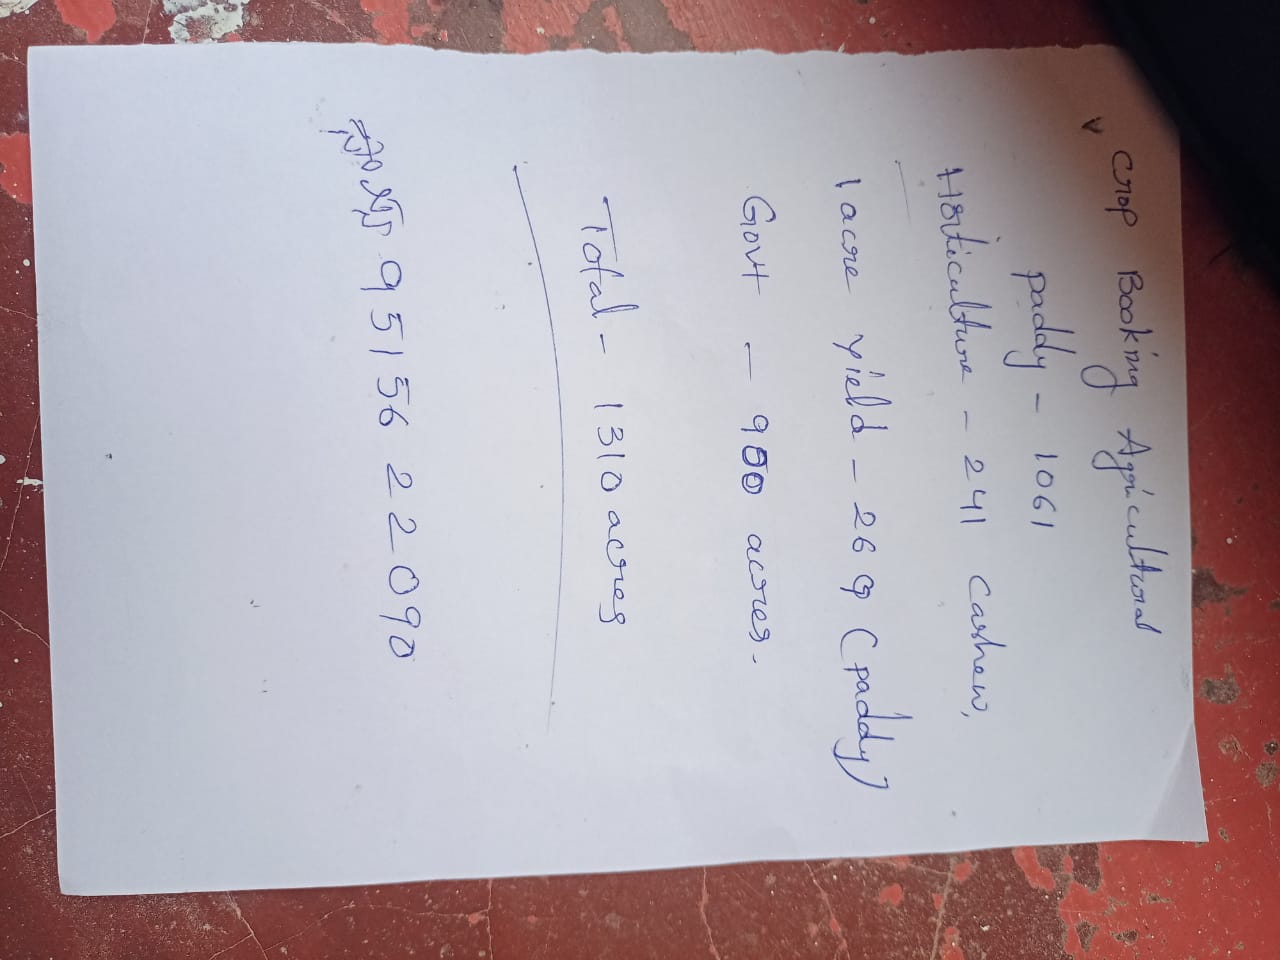 ✓ Crop Booking Agricultural
paddy - 1061
Horticulture - 241 Cashew,
1 acre yield - 26 Q (paddy)
Govt - 900 acres.
Total - 1310 acres
95156 22090